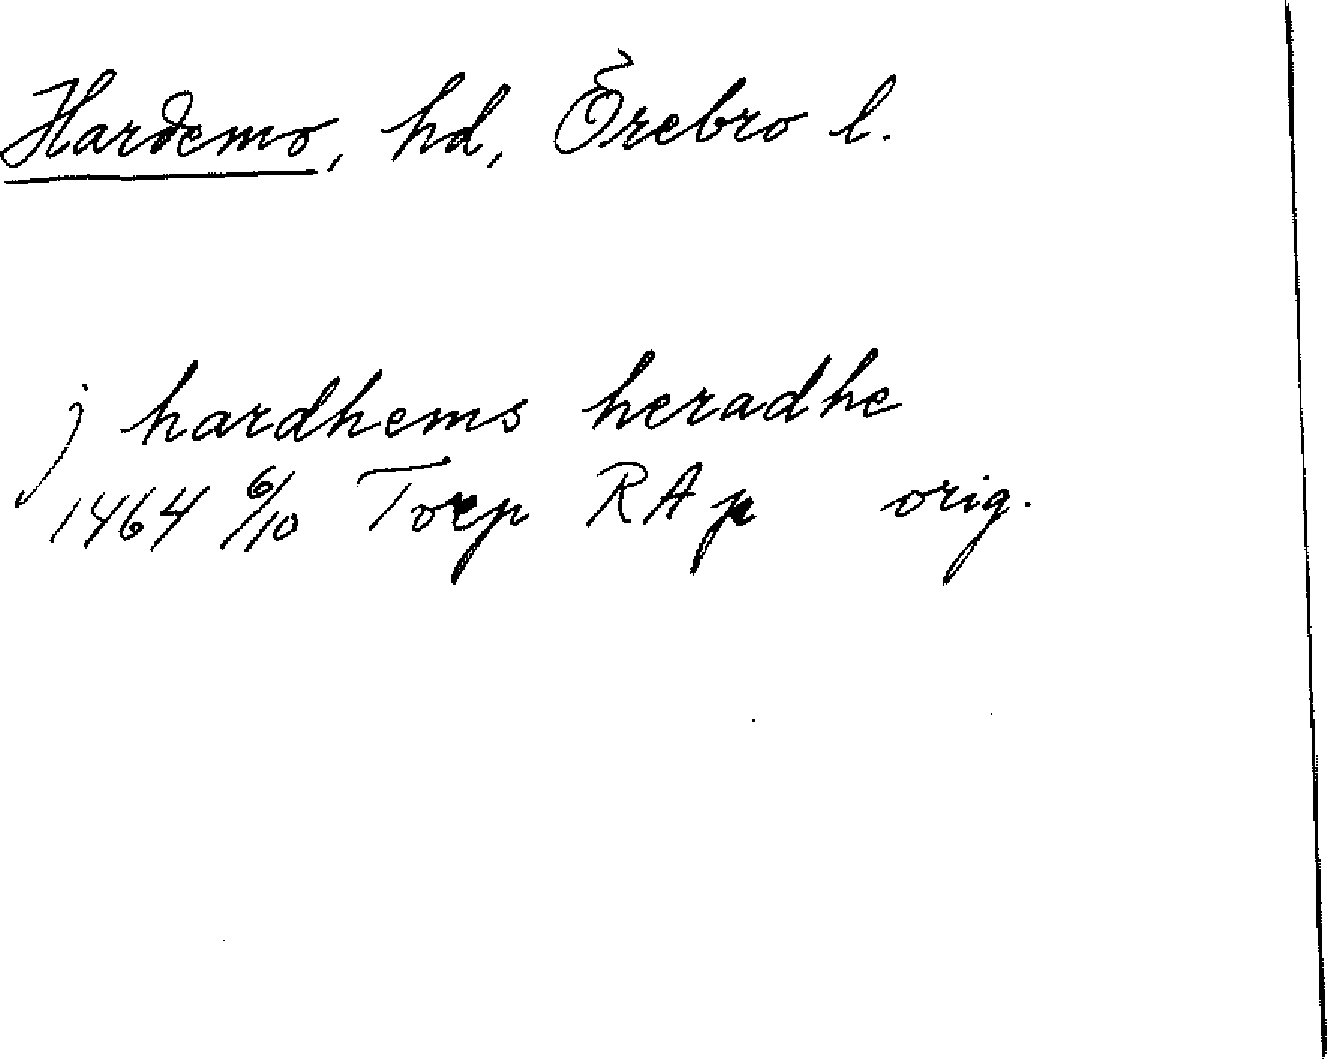 Hardemo, hd, Örebro l.
j hardhems heradhe
1464 6/10 Torp RAp orig.